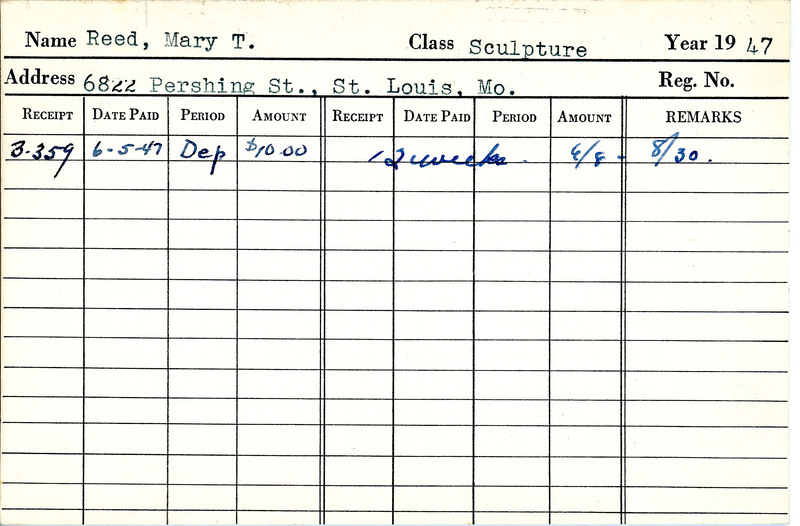 Name Reed, Mary T. Class Sculpture Year 19 47
Address 6822 Pershing St., St. Louis, Mo. Reg. No.
RECEIPT DATE PAID PERIOD AMOUNT RECEIPT DATE PAID PERIOD AMOUNT REMARKS
3-359 6-5-47 Dep $10.00 12 weeks. 6/8 - 8/30.